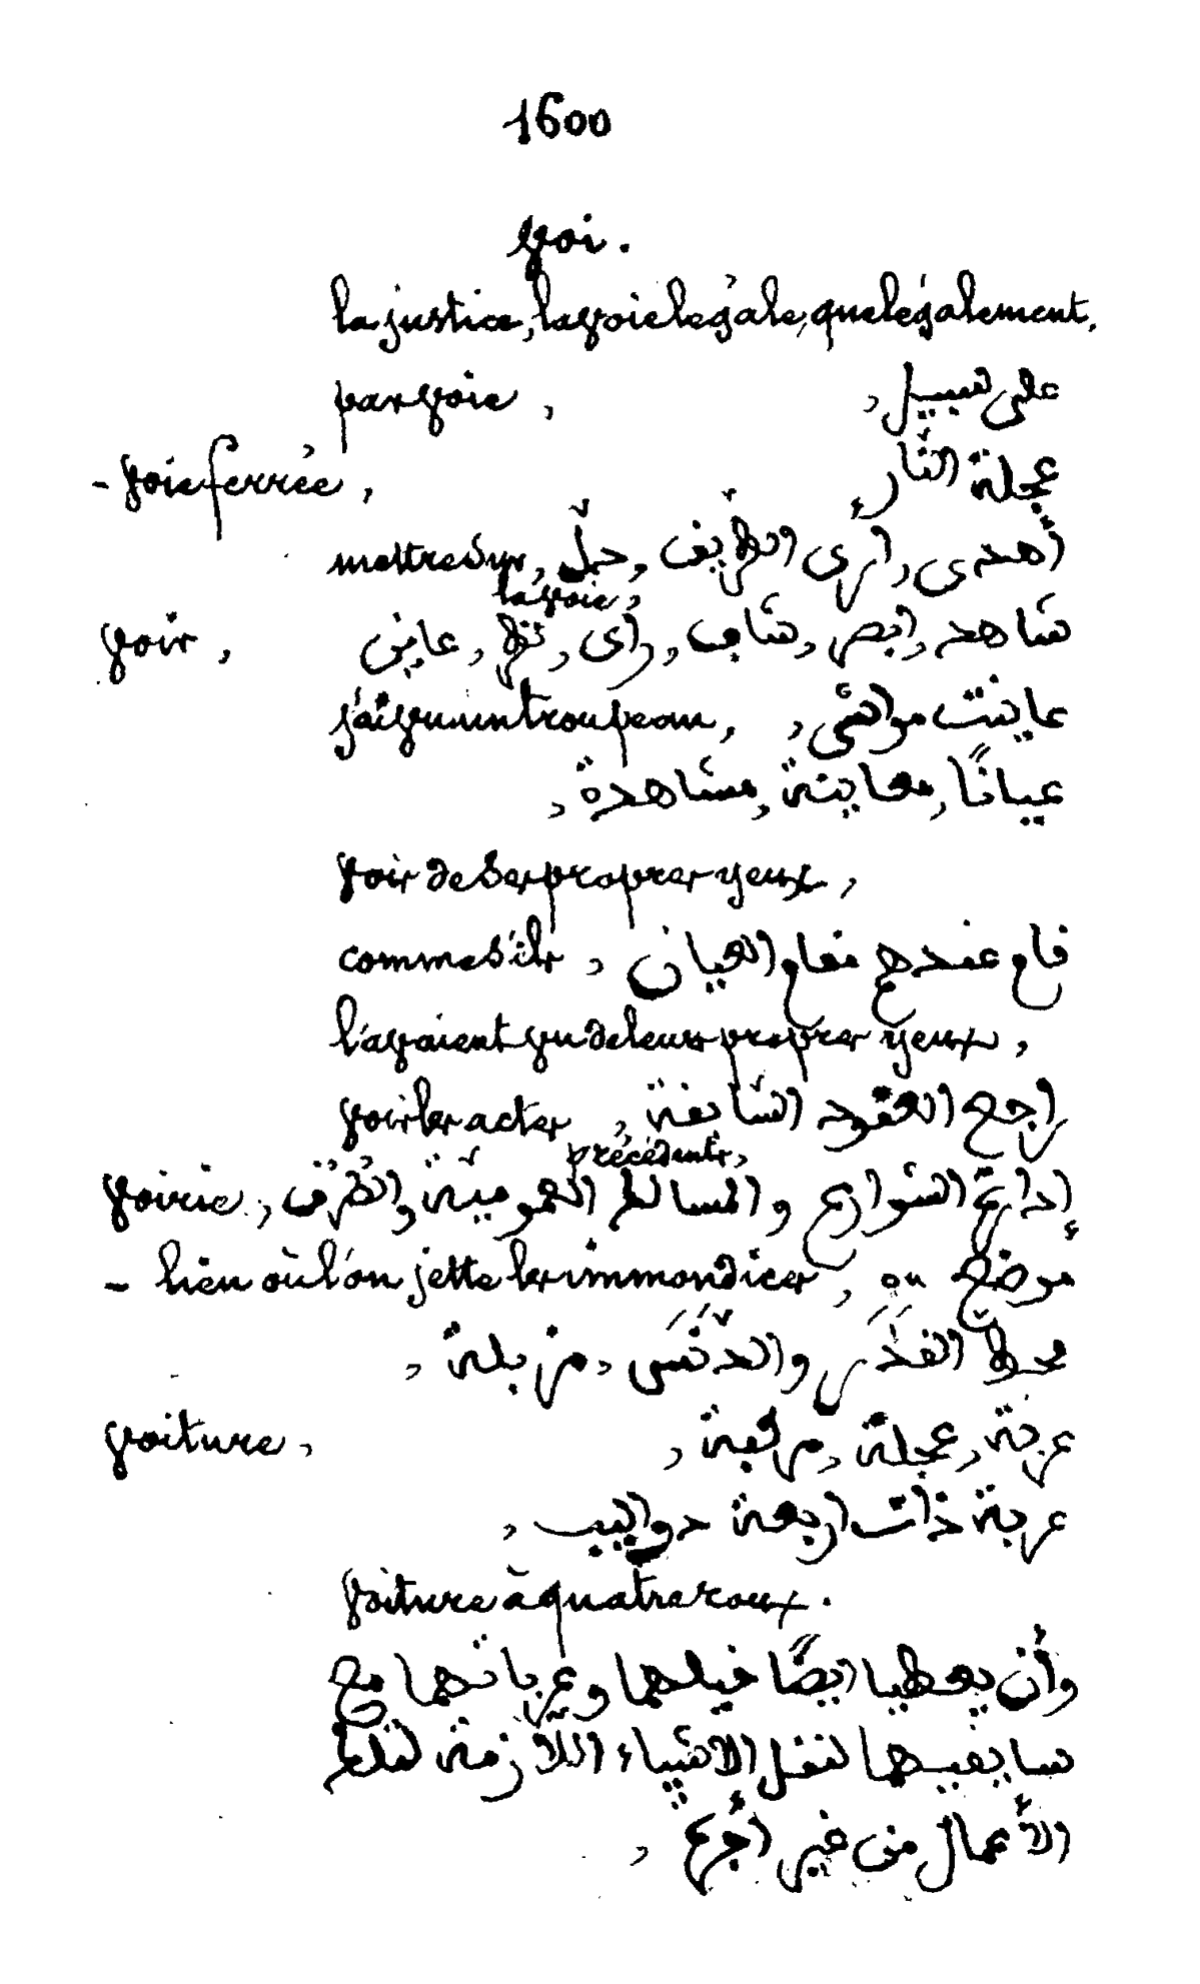 1600
voi.
la justice, la voie légale, que légalement.
par voie, على سبيل,
- voie ferrée, عجلة النّار
mettre sur, أهدى, أرى الطّريق, دلّ
la voie,
voir, شاهد, ابصر, شاف, رأى, نظر, عاين
j'ai vu un troupeau, عاينت مواشي,
عيانًا, معاينة, مشاهدة,
voir de ses propres yeux,
comme s'ils, قام عندهم مقام العيان
l'avaient vu de leurs propres yeux,
voir les actes, راجع العقود السّابقة
précédents,
voirie, إدارة الشّوارع والمسالك العموميّة والطُّرُق
- lieu où l'on jette les immondices, ou موضع
محطّ القَذَر والدَّنَس, مزبلة,
voiture, عربة, عجلة, مركبة,
عربة ذات اربعة دواليب,
voiture à quatre roux.
وأن يعطيا ايضًا خيلهما وعرباتهما مع
سايقيهما لنقل الاشياء اللّازمة لتلك
الأعمال من غير أُجرة,